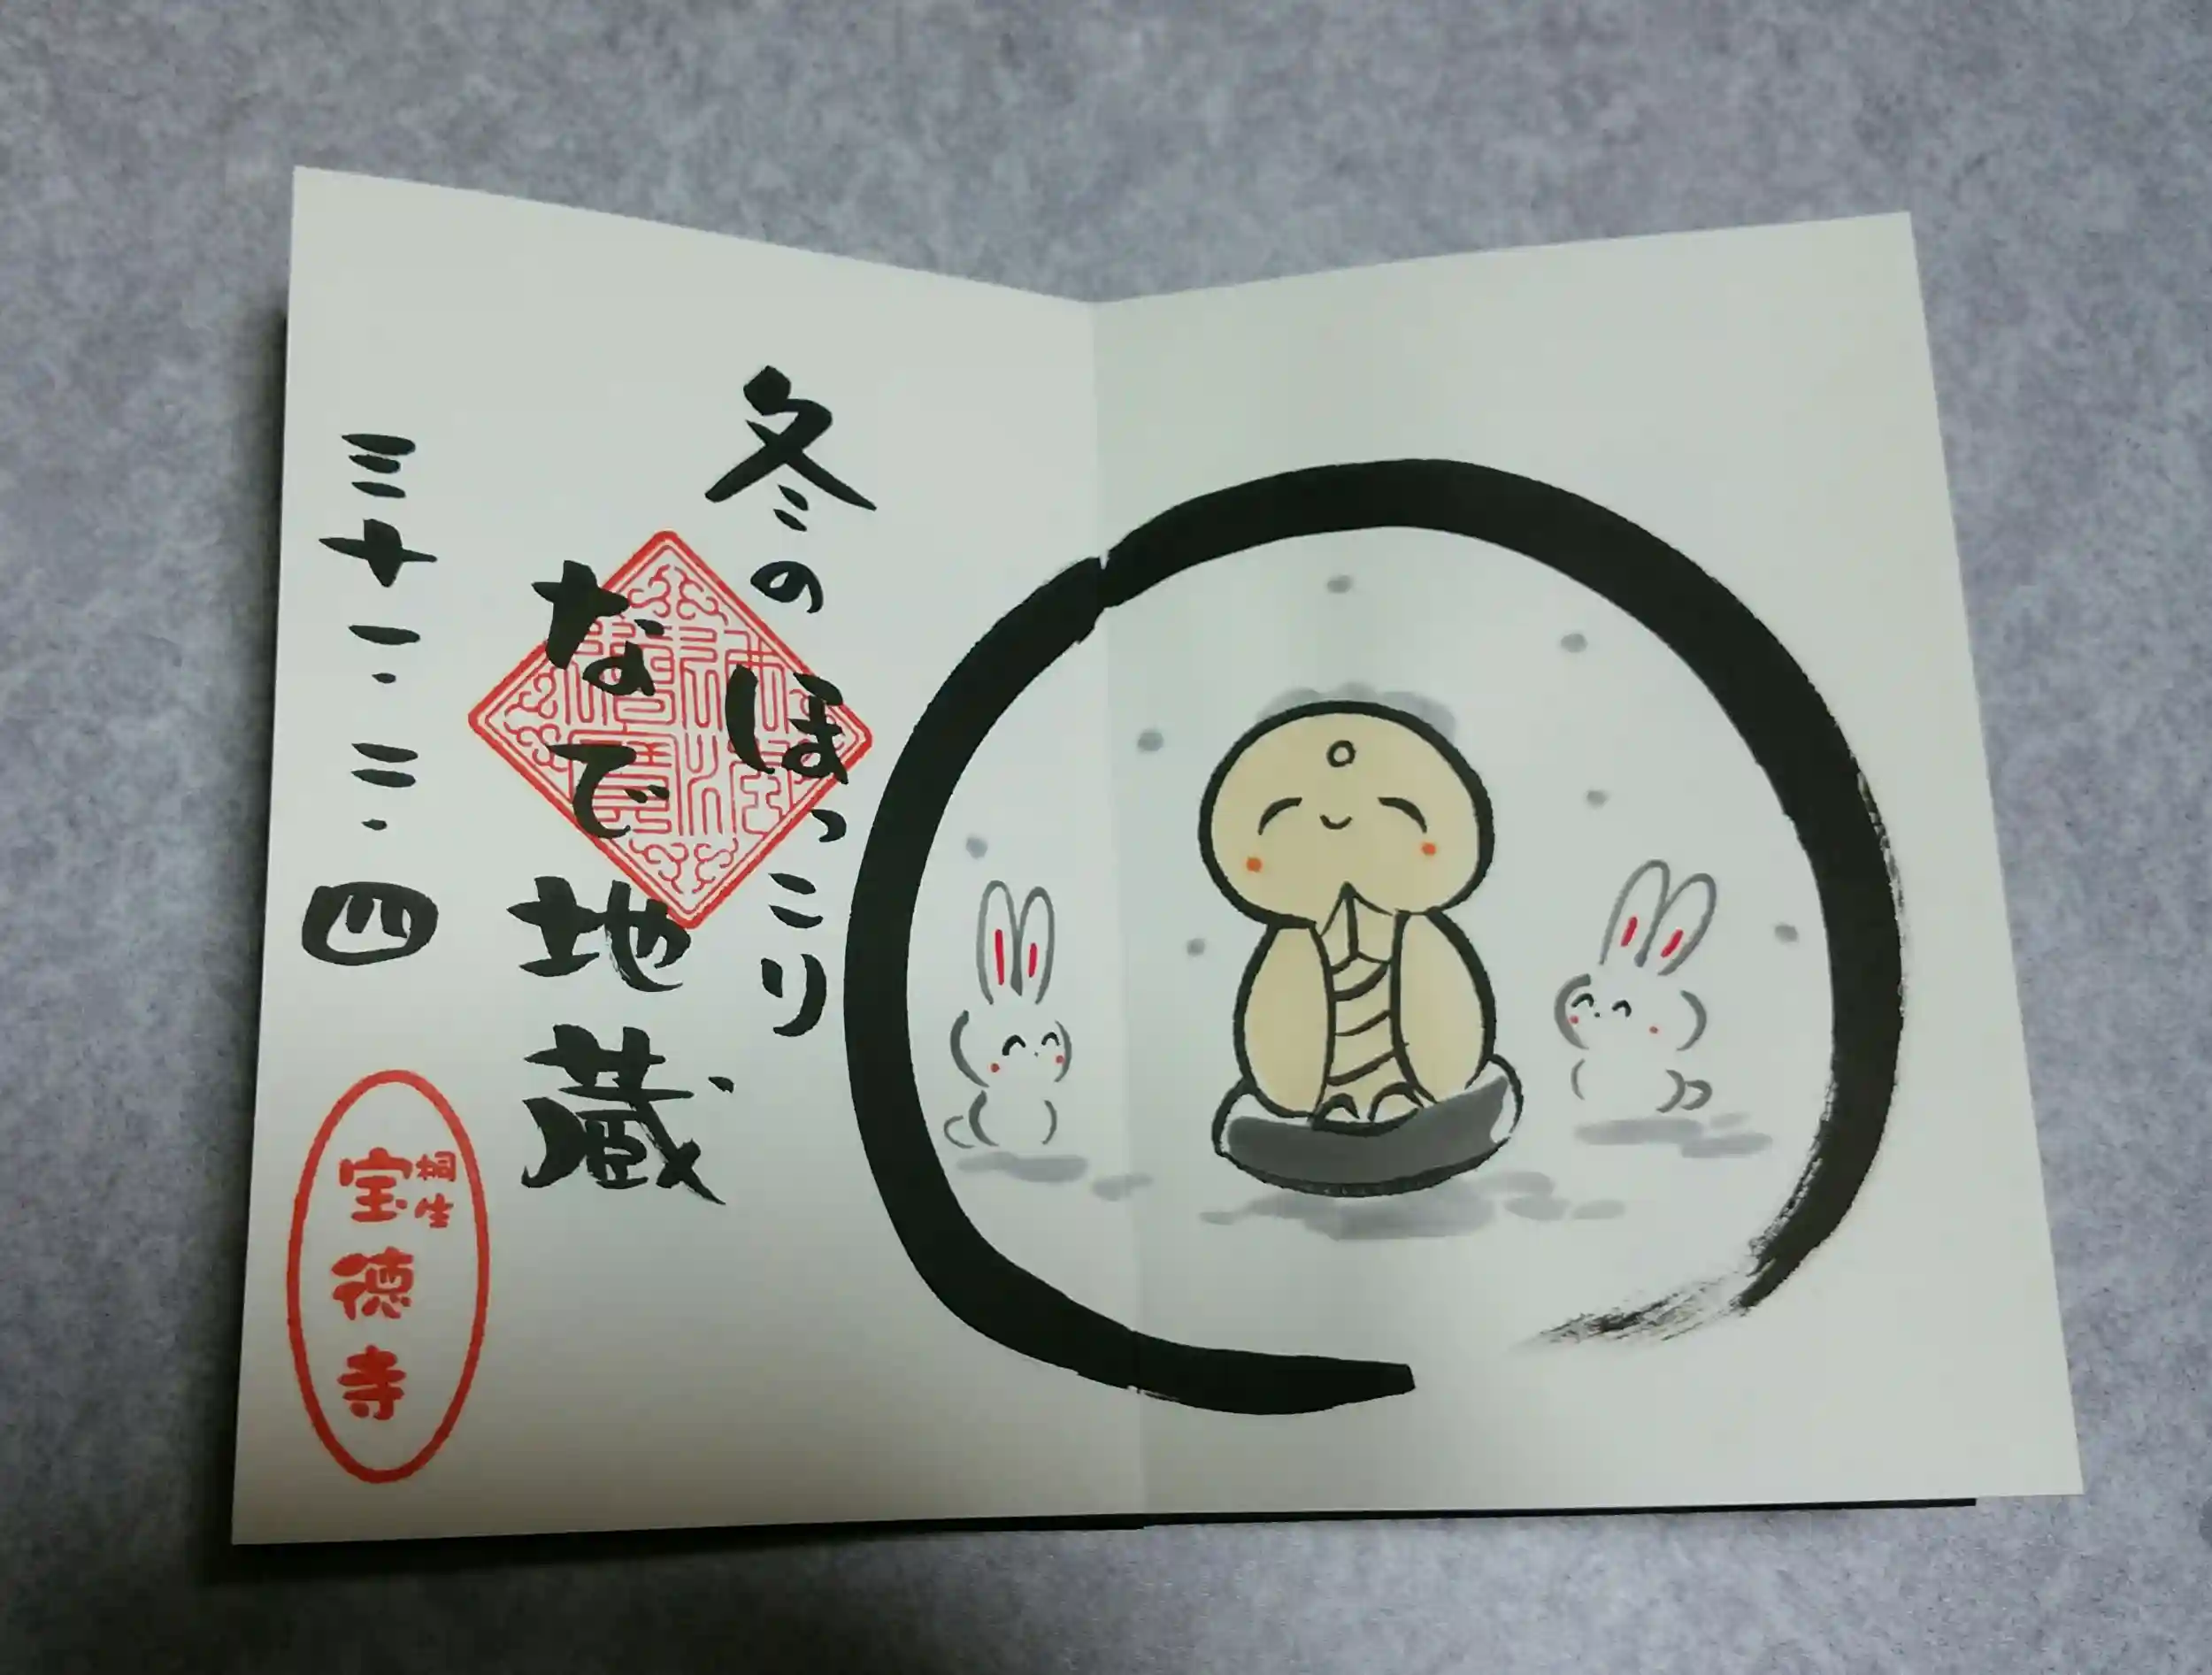 冬の
ほっこり
なで地蔵
三十一・二・四
桐生
宝徳寺